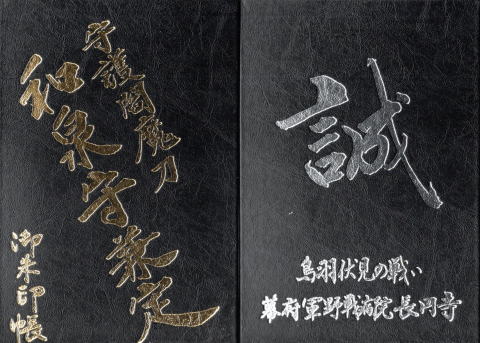 守護閻魔刀
和泉守兼定
御朱印帳
誠
鳥羽伏見の戦い
幕府軍野戦病院・長円寺